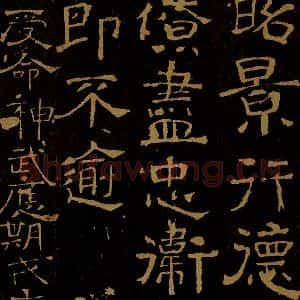 昭景行德
盡忠衛
即不
受命神武應期
Shufawang.CN